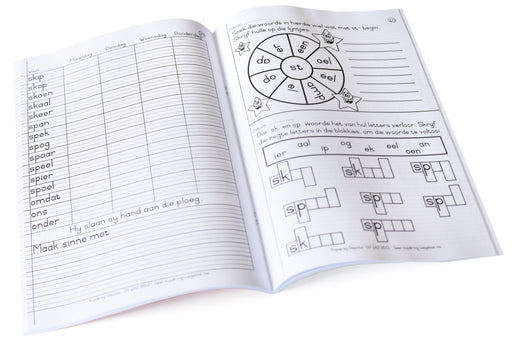 Maandag Dinsdag Woensdag Donderdag
skip
skop
skoen
skaal
skeer
span
spek
spog
spaar
speel
spier
spoel
omdat
ons
onder
Hy slaan sy hand aan die ploeg.
Maak sinne met
Soek die woorde in hierdie wiel wat met st- begin.
Skryf hulle op die lyntjies.
st
een
oel
amp
e
do
do
Die sk en sp woorde het van hul letters verloor. Skryf
die regte letters in die blokkies, om die woorde te voltooi.
aal og eel aan
ier ip ek oen
sk
sp
sp
sp
sp
sk
sp
sk
sp